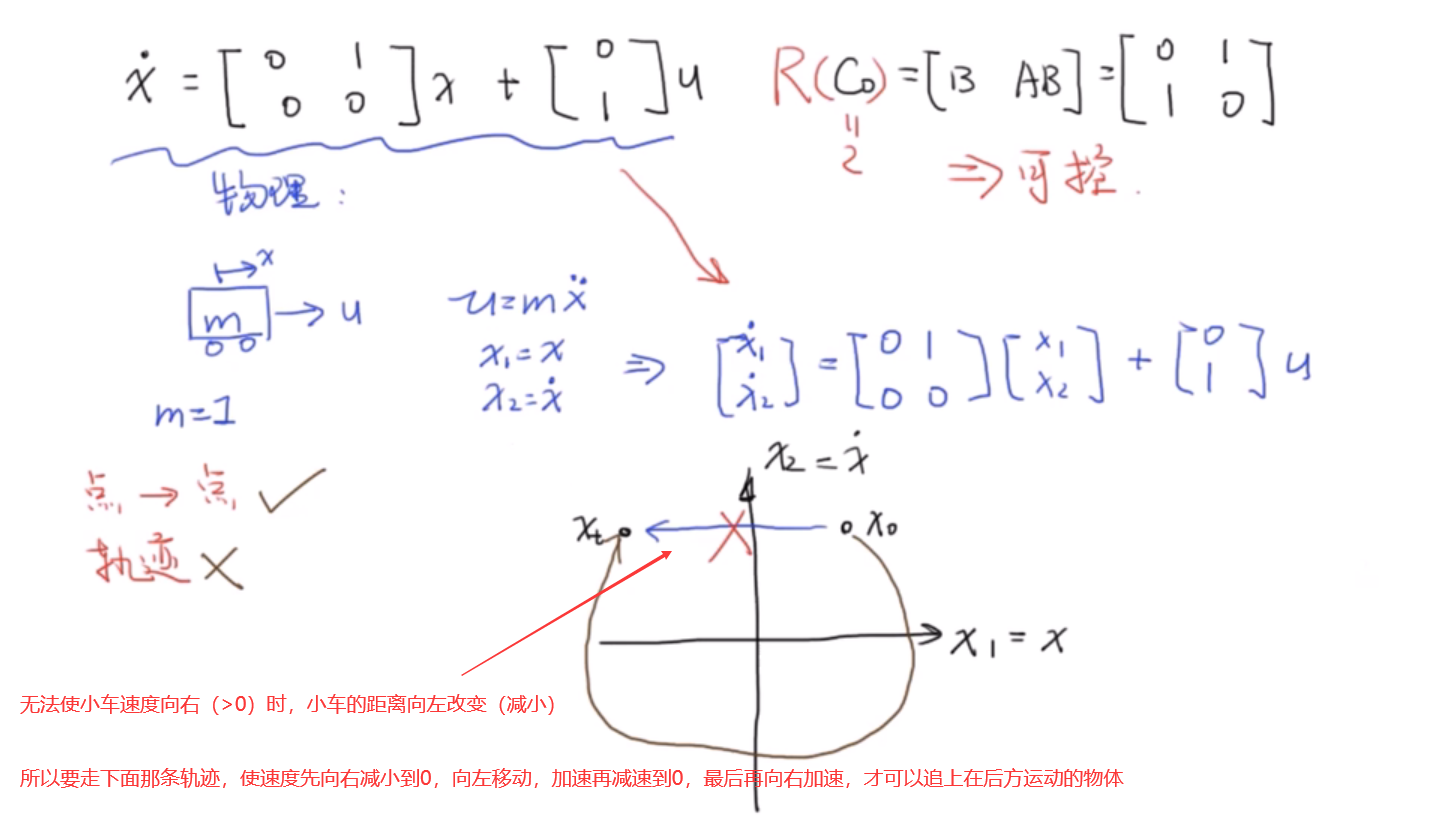 ẋ = [0 1; 0 0] x + [0; 1] u    R(C₀) = [B AB] = [0 1; 1 0]
॥
2
⇒ 可控.
物理:
→ x
m → u
m=1
u = mẍ
x₁ = x
x₂ = ẋ
⇒ [ẋ₁; ẋ₂] = [0 1; 0 0] [x₁; x₂] + [0; 1] u
点 → 点 ✓
轨迹 ×
x₂ = ẋ
xₜ
x₀
x₁ = x
无法使小车速度向右（>0）时，小车的距离向左改变（减小）
所以要走下面那条轨迹，使速度先向右减小到0，向左移动，加速再减速到0，最后再向右加速，才可以追上在后方运动的物体